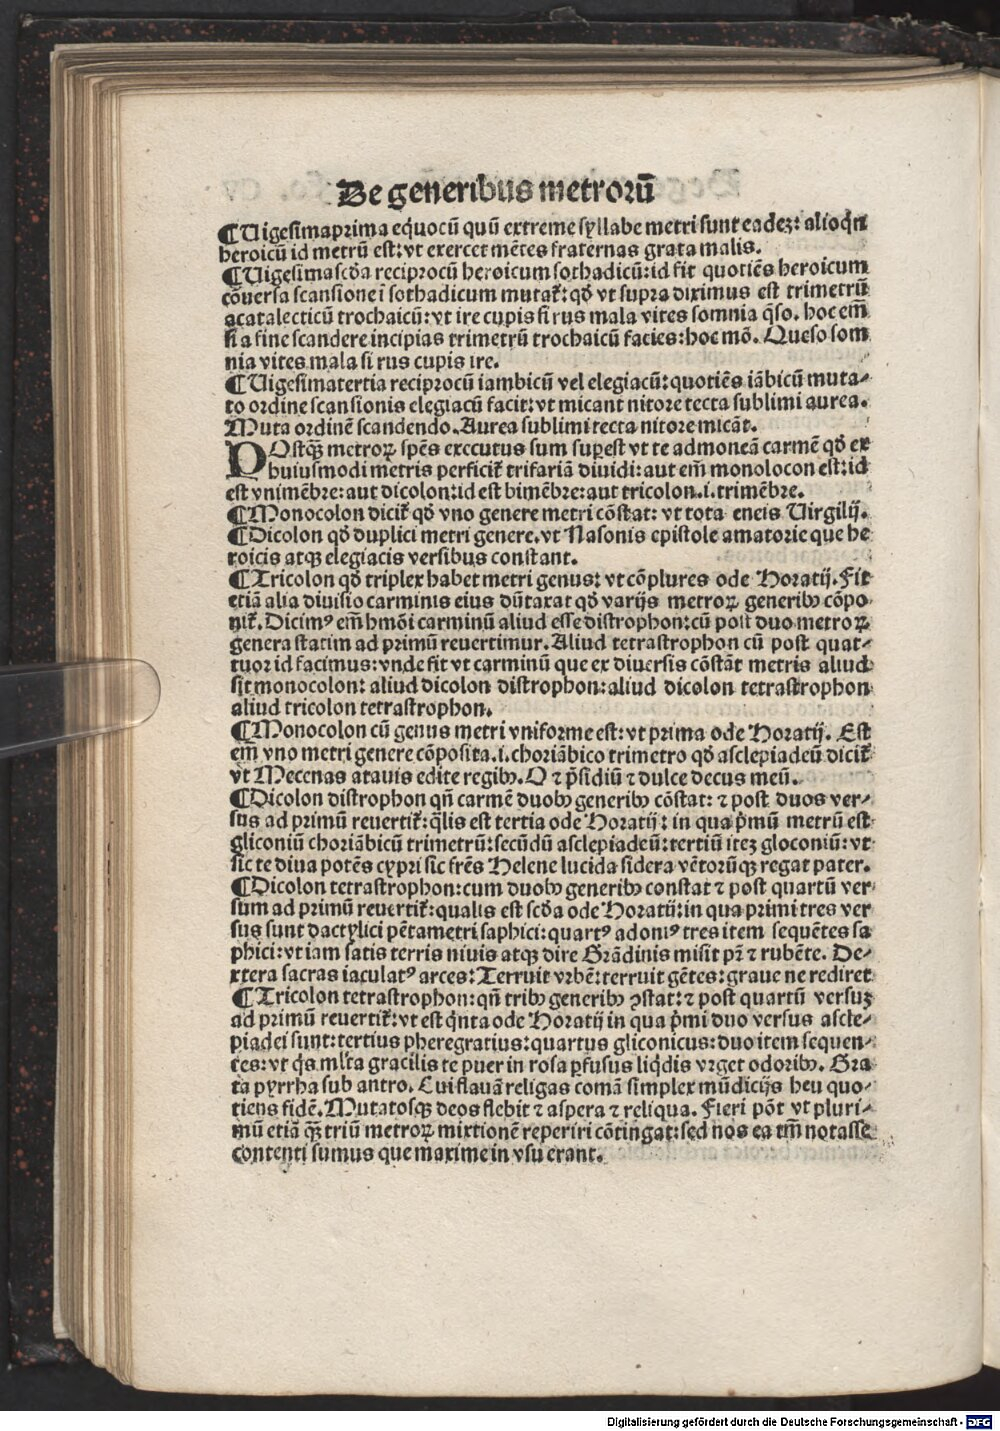 De generibus metrorū
¶Uigesimaprima eq̇uocū quū extreme syllabe metri sunt eadeꝫ: alioq̇n
heroicū id metrū est: vt exercet mētes fraternas grata malis.
¶Uigesimascd̄a reciprocū heroicum sothadicū: id fit quotiēs heroicum
cōuersa scansione ī sothadicum mutat̃: qd̄ vt supra diximus est trimetrū
acatalecticū trochaicū: vt ire cupis si rus mala vites somnia q̄so. hoc em̄
si a fine scandere incipias trimetrū trochaicū facies: hoc mō. Queso som
nia vites mala si rus cupis ire.
¶Uigesimatertia reciprocū iambicū vel elegiacū: quotiēs iābicū muta⸗
to ordine scansionis elegiacū facit: vt micant nitore tecta sublimi aurea.
Muta ordinē scandendo. Aurea sublimi tecta nitore micāt.
POstq̄ꝫ metroꝝ spēs exccutus sum suꝑest vt te admoneā carmē qd̄ ex
huiusmodi metris perficit̃ trifariā diuidi: aut em̄ monolocon est: id
est vnimēbre: aut dicolon: id est bimēbre: aut tricolon .i. trimēbre.
¶Monocolon dicit̃ qd̄ vno genere metri cōstat: vt tota eneis Uirgilij.
¶Dicolon qd̄ duplici metri genere. vt Nasonis epistole amatorie que he
roicis atqꝫ elegiacis versibus constant.
¶Tricolon qd̄ triplex habet metri genus: vt cōplures ode Horatij. Fit
etiā alia diuisio carminis eius dūtaxat qd̄ varijs metroꝝ generibꝰ cōpo
nit̃. Dicimꝰ em̄ hmōi carminū aliud esse distrophon: cū post duo metroꝝ
genera statim ad primū reuertimur. Aliud tetrastrophon cū post quat⸗
tuor id facimus: vnde fit vt carminū que ex diuersis cōstāt metris aliud
sit monocolon: aliud dicolon distrophon: aliud dicolon tetrastrophon
aliud tricolon tetrastrophon.
¶Monocolon cū genus metri vniforme est: vt prima ode Horatij. Est
em̄ vno metri genere cōposita .i. choriābico trimetro qd̄ asclepiadeū dicit̃
vt Mecenas atauis edite regibꝰ. O ⁊ p̄sidiū ⁊ dulce decus meū.
¶Dicolon distrophon qn̄ carmē duobꝰ generibꝰ cōstat: ⁊ post duos ver⸗
sus ad primū reuertit̃: q̄lis est tertia ode Horatij: in qua p̄mū metrū est
gliconiū choriābicū trimetrū: secūdū asclepiadeū: tertiū iteꝫ gloconiū: vt
sic te diua potēs cypri sic frēs Helene lucida sidera vētorūqꝫ regat pater.
¶Dicolon tetrastrophon: cum duobꝰ generibꝰ constat ⁊ post quartū ver
sum ad primū reuertit̃: qualis est scd̄a ode Horatij: in qua primi tres ver
sus sunt dactylici pētametri saphici: quartꝰ adoniꝰ tres item sequētes sa
phici: vt iam satis terris niuis atqꝫ dire Grādinis misit pr̄ ⁊ rubēte. De⸗
xtera sacras iaculatꝰ arces: Terruit vrbē: terruit gētes: graue ne rediret
¶Tricolon tetrastrophon: qn̄ tribꝰ generibꝰ ꝯstat: ⁊ post quartū versuꝫ
ad primū reuertit̃: vt est q̇nta ode Horatij in qua p̄mi duo versus ascle⸗
piadei sunt: tertius pheregratius: quartus gliconicus: duo item sequen⸗
tes: vt q̇s ml̄ta gracilis te puer in rosa ꝑfusus liq̇dis vrget odoribꝰ. Gra
ta pyrrha sub antro. Cui flauā religas comā simplex mūdicijs heu quo⸗
tiens fidē. Mutatosqꝫ deos flebit ⁊ aspera ⁊ reliqua. Fieri pōt vt pluri⸗
mū etiā q̄ꝫ triū metroꝝ mixtionē reperiri cōtingat: sed nos ea tm̄ notasse
contenti sumus que maxime in vsu erant.
Digitalisierung gefördert durch die Deutsche Forschungsgemeinschaft - DFG